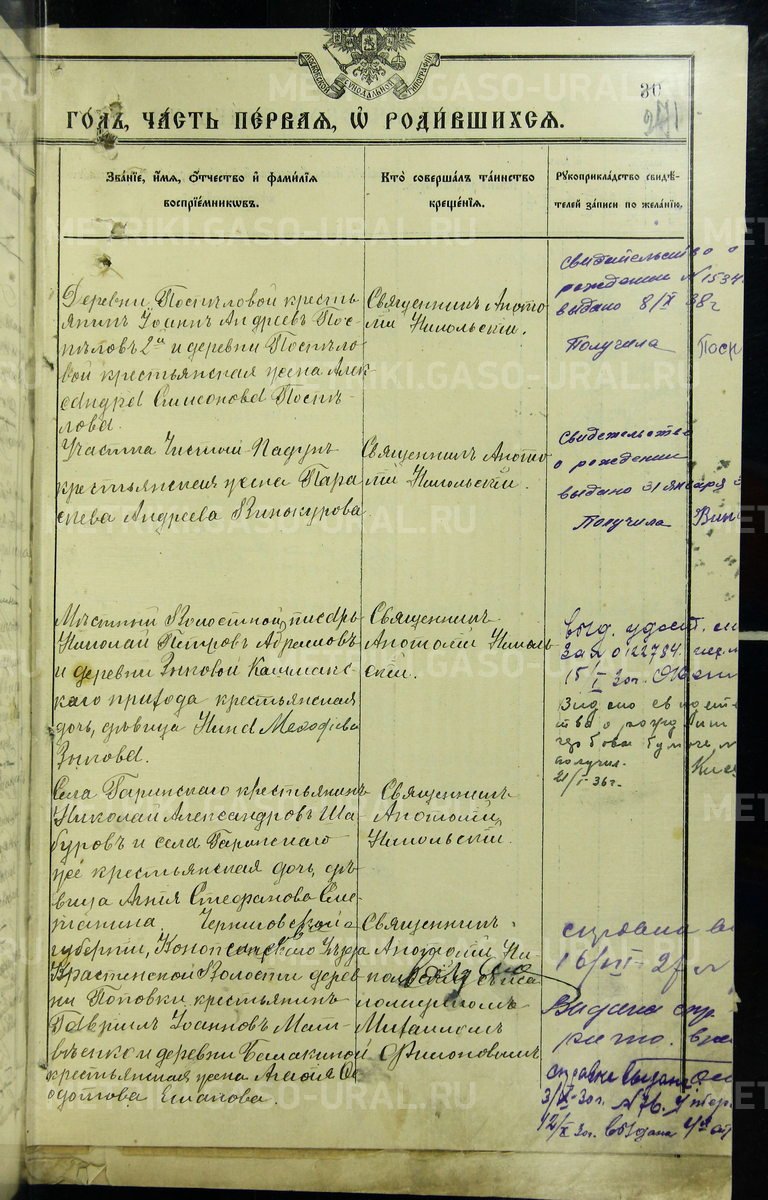 МОСКОВСКОЙ СѴНОДАЛЬНОЙ ТИПОГРАФІИ
30
271
ГОДЪ, ЧАСТЬ ПЕРВАЯ, Ѡ РОДИВШИХСЯ.
Званіе, имя, отчество и фамилія
воспріемниковъ.
Кто совершалъ таинство
крещенія.
Рукоприкладство свидѣ-
телей записи по желанію.
Деревни Поспѣловой кресть-
янинъ Іоаннъ Андреевъ Пос-
пѣловъ 2й и деревни Поспѣло-
вой крестьянская жена Алек-
сандра Симеонова Поспѣ-
лова.
Священникъ Анато-
лій Никольскій.
Свидетельство о
рождении №1534
выдано 8/X 38г
Получила Посп
Участка Чистый-Падунъ
крестьянская жена Пара-
скева Андреева Винокурова
Священникъ Анато-
лій Никольскій.
Свидетельство
о рождении
выдано 31 января 3
Получила Вин
Мѣстный Волостной писарь
Николай Петровъ Абрамовъ
и деревни Зыковой Кашмакс-
каго прихода крестьянская
дочь, дѣвица Нина
Зыкова.
Священникъ
Анатолій Николь-
скій.
выд. удост.
за № 0122784
15/I 30г.
Видано свидет
тво о рожд
гербовой бумаге
получил.
21/I-36г.
Села Гаринскаго крестьянинъ
Николай Александровъ Ша-
буровъ и села Гаринскаго
крестьянская дочь, дѣ-
вица Агнія Стефанова Сме-
танина
Священникъ
Анатолій
Никольскій.
Черниговской
губерніи, Конотопскаго Уѣзда
Красненской Волости дерев-
ни Поповки крестьянинъ
Гавріилъ Іоанновъ Мат-
вѣенко и деревни Балакиной
крестьянская жена Агаѳія Ѳе-
одотова
Священникъ
Анатолій Ни-
кольскій съ пса-
ломщикомъ
Михаиломъ
Филоновымъ
справка
16/III-27
Видана спр
справка выдана
3/IX-30г. №76.
12/X 30г. выдана
METRIKI.GASO-URAL.RU